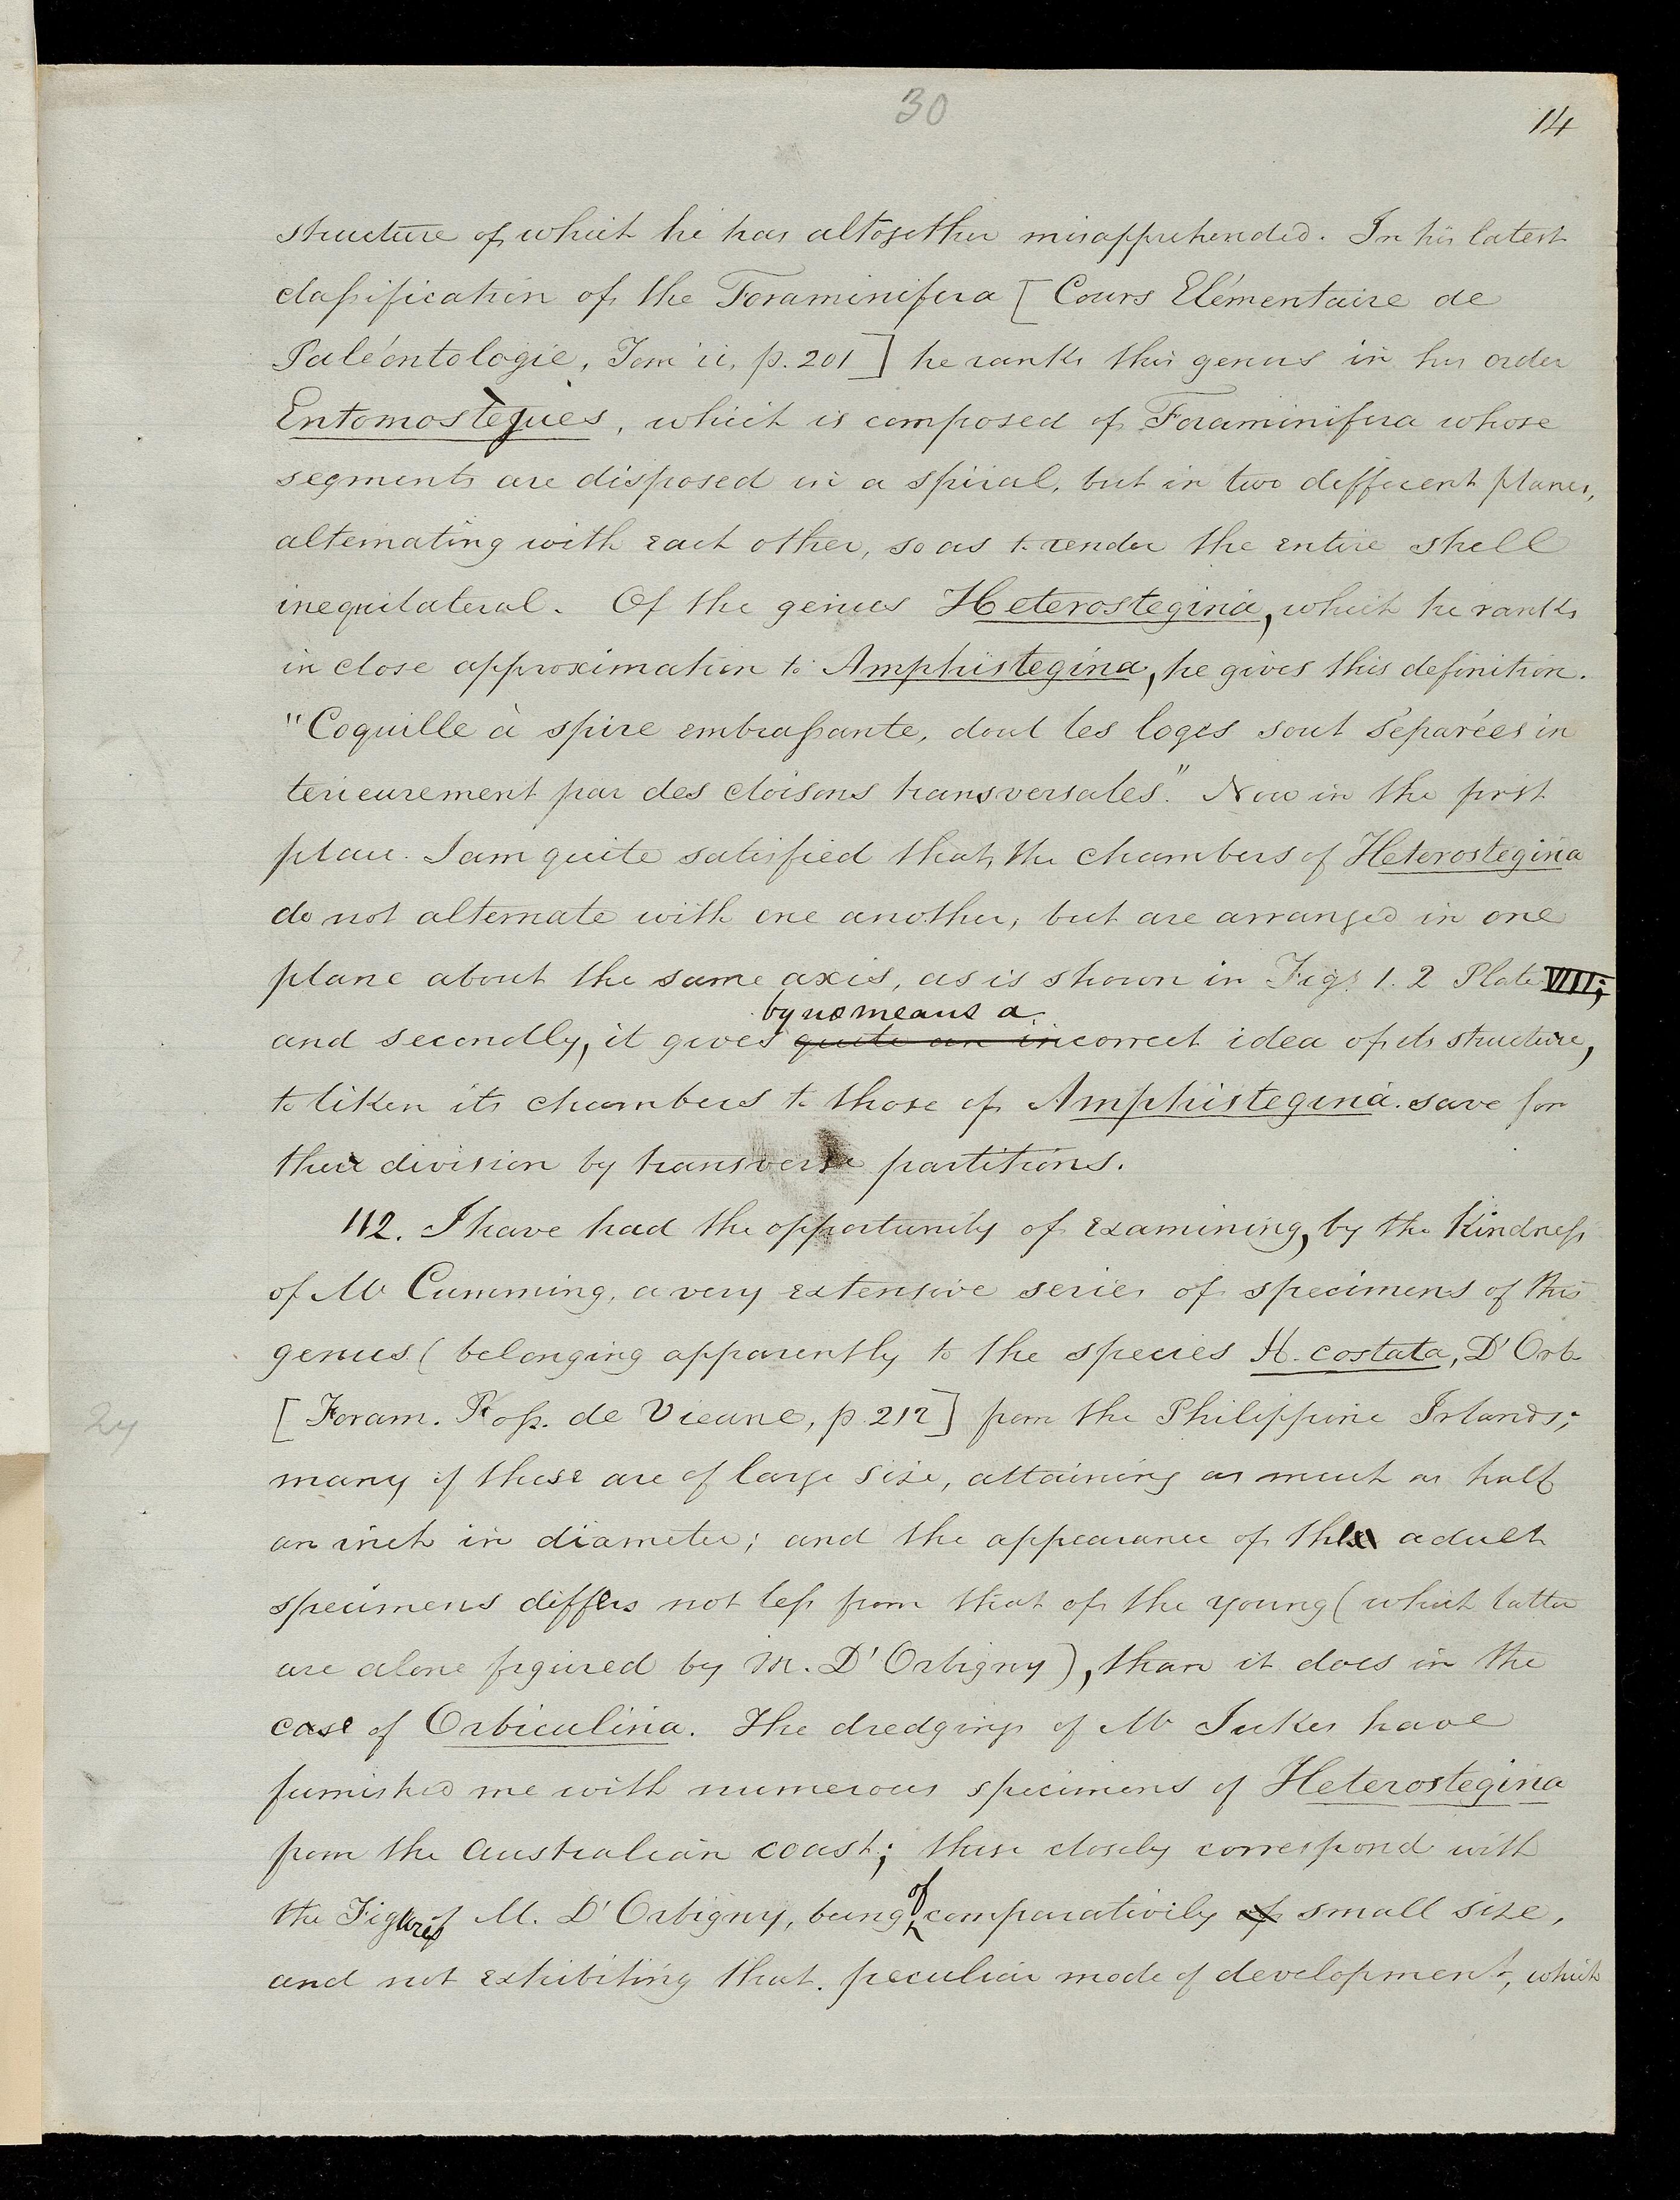 30
14
structure of which he has altogether misapprehended. In his latest
classification of the Foraminifera [Cours Elémentaire de
Paléontologie, Tom ii, p. 201] he ranks this genus in his order
Entomostègues, which is composed of Foraminifera whose
segments are disposed in a spiral, but in two different planes,
alternating with each other, so as to render the entire shell
inequilateral. Of the genus Heterostegina, which he ranks
in close approximation to Amphistegina, he gives this definition.
"Coquille à spire embrassante, dont les loges sont séparées in
terieurement par des cloisons transversales." Now in the first
place. I am quite satisfied that the chambers of Heterostegina
do not alternate with one another, but are arranged in one
plane about the same axis, as is shown in Figs 1. 2 Plate VIII;
by no means a
and secondly, it gives quite an incorrect idea of its structure,
to liken its chambers to those of Amphistegina. save for
their division by transverse partitions.
112. I have had the opportunity of examining, by the Kindness
of Mr Cumming, a very extensive series of specimens of this
genus (belonging apparently to the species H. costata, D'Orb
[Foram. Foss. de Vienne, p 212] from the Philippine Islands;
many of these are of large size, attaining as much as half
an inch in diameter; and the appearance of the adult
specimens differs not less from that of the young (which latter
are alone figured by M. D'Orbigny), than it does in the
case of Orbiculina. The dredgings of Mr Jukes have
furnished me with numerous specimens of Heterostegina
from the Australian coast; these closely correspond with
of
the Figures of M. D'Orbigny, being comparatively of small size,
and not exhibiting that peculiar mode of development, which
24